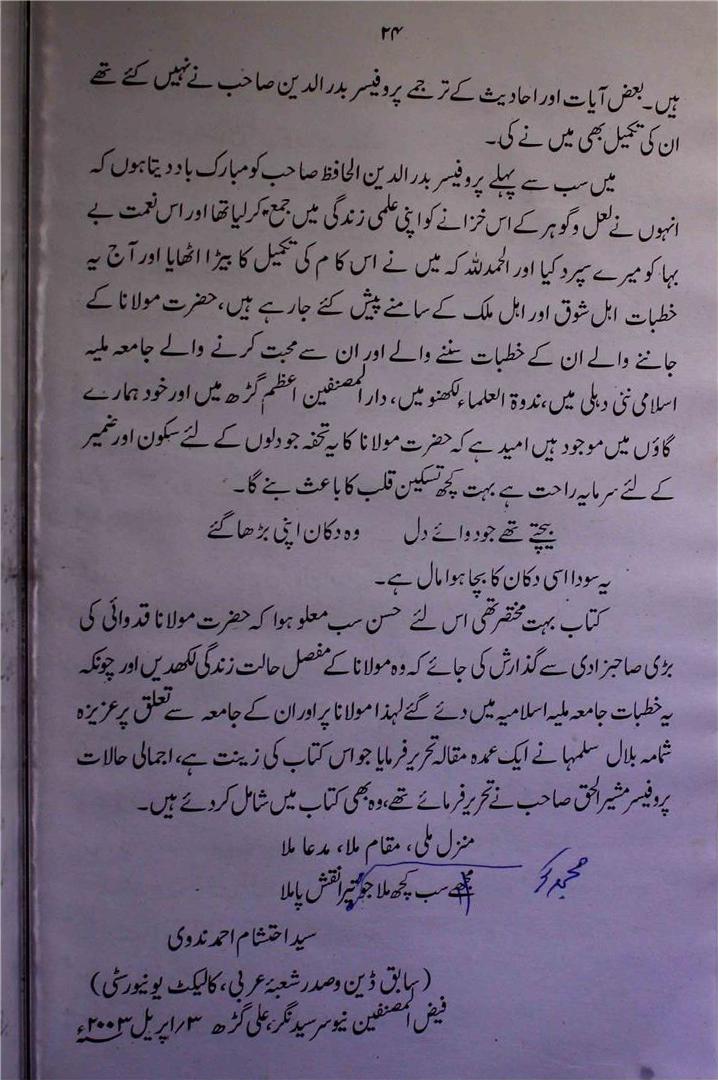 ۲۴
ہیں۔ بعض آیات اور احادیث کے ترجمے پروفیسر بدر الدین صاحب نے نہیں کئے تھے
ان کی تکمیل بھی میں نے کی۔
میں سب سے پہلے پروفیسر بدر الدین الحافظ صاحب کو مبارک باد دیتا ہوں کہ
انہوں نے لعل و گوہر کے اس خزانے کو اپنی علمی زندگی میں جمع کر لیا تھا اور اس نعمت بے
بہا کو میرے سپرد کیا اور الحمدللہ کہ میں نے اس کام کی تکمیل کا بیڑا اٹھایا اور آج یہ
خطبات اہل شوق اور اہل ملک کے سامنے پیش کئے جارہے ہیں، حضرت مولانا کے
جاننے والے ان کے خطبات سننے والے اور ان سے محبت کرنے والے جامعہ ملیہ
اسلامی نئی دہلی میں، ندوۃ العلماء لکھنو میں، دار المصنفین اعظم گڑھ میں اور خود ہمارے
گاؤں میں موجود ہیں امید ہے کہ حضرت مولانا کا یہ تحفہ جو دلوں کے لئے سکون اور ضمیر
کے لئے سرمایہ راحت ہے بہت کچھ تسکین قلب کا باعث بنے گا۔
بیچتے تھے جو دوائے دل وہ دکان اپنی بڑھا گئے
یہ سودا اسی دکان کا بچا ہوا مال ہے۔
کتاب بہت مختصر تھی اس لئے حسن سب معلو ہوا کہ حضرت مولانا قدوائی کی
بڑی صاحبزادی سے گذارش کی جائے کہ وہ مولانا کے مفصل حالت زندگی لکھدیں اور چونکہ
یہ خطبات جامعہ ملیہ اسلامیہ میں دئے گئے لہذا مولانا پر اور ان کے جامعہ سے تعلق پر عزیزہ
شمامہ بلال سلمہا نے ایک عمدہ مقالہ تحریر فرمایا جو اس کتاب کی زینت ہے، اجمالی حالات
پروفیسر مشیر الحق صاحب نے تحریر فرمائے تھے، وہ بھی کتاب میں شامل کردئے ہیں۔
منزل ملی، مقام ملا، مدعا ملا
مجھے سب کچھ ملا جو تیرا نقش پا ملا
سید احتشام احمد ندوی
(سابق ڈین و صدر شعبۂ عربی، کالیکٹ یونیورسٹی)
فیض المصنفین نیو سرسید نگر، علی گڑھ ۳/اپریل ۲۰۰۳ء